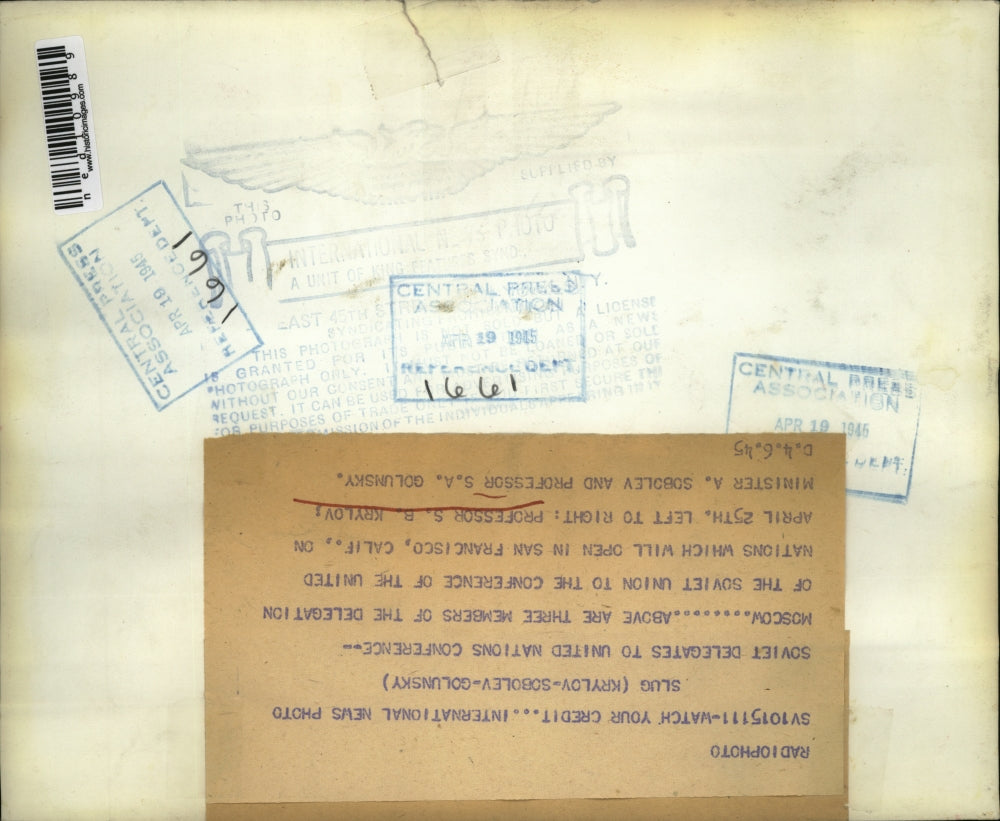 RADIOPHOTO
SV1015111-WATCH YOUR CREDIT...INTERNATIONAL NEWS PHOTO
SLUG (KRYLOV-SOBOLEV-GOLUNSKY)
SOVIET DELEGATES TO UNITED NATIONS CONFERENCE--
MOSCOW..........ABOVE ARE THREE MEMBERS OF THE DELEGATION
OF THE SOVIET UNION TO THE CONFERENCE OF THE UNITED
NATIONS WHICH WILL OPEN IN SAN FRANCISCO, CALIF., ON
APRIL 25TH. LEFT TO RIGHT: PROFESSOR S. B. KRYLOV;
MINISTER A. SOBOLEV AND PROFESSOR S.A. GOLUNSKY.
D.4.6.45
www.historicimages.com
SUPPLIED BY
THIS
PHOTO
INTERNATIONAL NEWS PHOTO
A UNIT OF KING FEATURES SYND.
EAST 45TH
A LICENSE
THIS PHOTOGRAPH IS
AS A NEWS
GRANTED FOR
MUST NOT BE LOANED OR SOLD
PHOTOGRAPH ONLY.
AT OUR
WITHOUT OUR CONSENT
PURPOSES OF
REQUEST. IT CAN BE USED
FIRST SECURE THE
FOR PURPOSES OF TRADE
OF THE INDIVIDUALS APPEARING IN IT
CENTRAL PRESS
ASSOCIATION
APR 19 1945
REFERENCE DEPT.
1661
CENTRAL PRESS
ASSOCIATION
APR 19 1945
REFERENCE DEPT.
1661
CENTRAL PRESS
ASSOCIATION
APR 19 1945
DEPT.